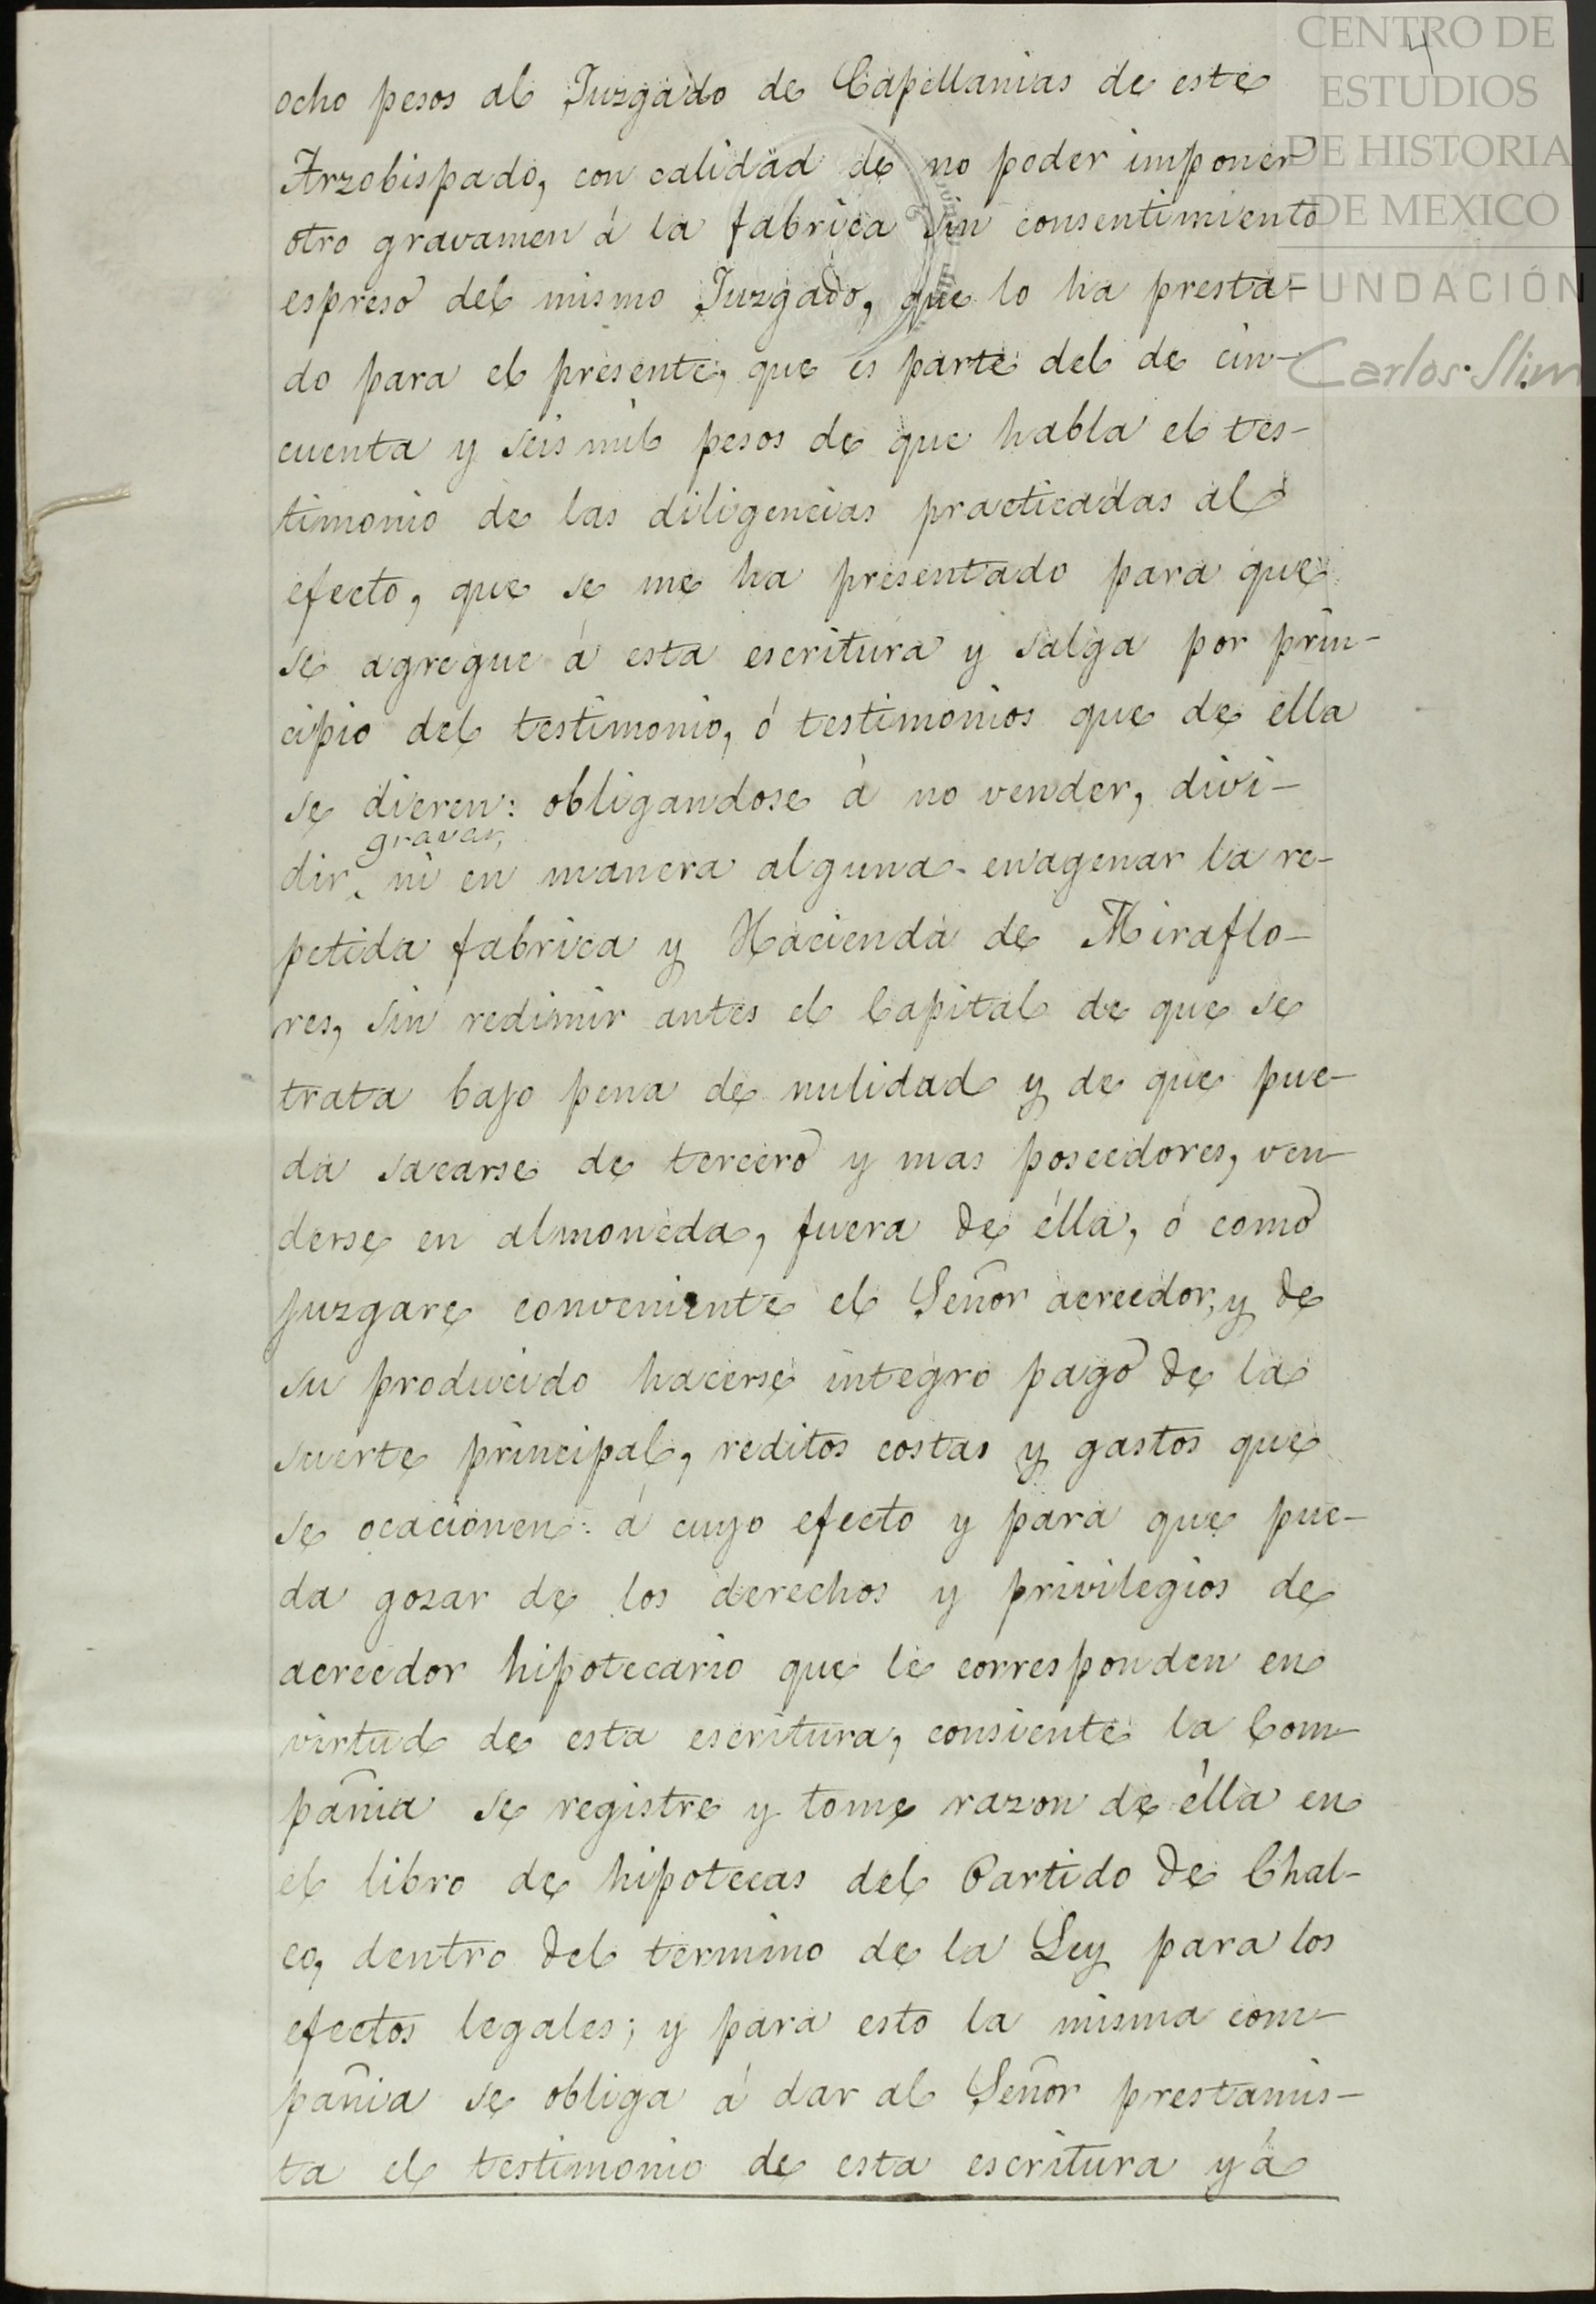 4
CENTRO DE
ESTUDIOS
DE HISTORIA
DE MEXICO
FUNDACIÓN
Carlos Slim
ocho pesos al Juzgado de Capellanias de este
Arzobispado, con calidad de no poder imponer
otro gravamen á la fabrica sin consentimiento
espreso del mismo Juzgado, que lo ha presta-
do para el presente, que es parte del de cin-
cuenta y seis mil pesos de que habla el tes-
timonio de las diligencias practicadas al
efecto, que se me ha presentado para que
se agregue á esta escritura y salga por prin-
cipio del testimonio, ó testimonios que de ella
se dieren: obligandose á no vender, divi-
gravar,
dir, ni en manera alguna enagenar la re-
petida fabrica y Hacienda de Miraflo-
res, sin redimir antes el Capital de que se
trata bajo pena de nulidad y de que pue-
da sacarse de tercero y mas poseedores, ven-
derse en almoneda, fuera de élla, ó como
juzgare conveniente el Señor acreedor, y de
su producido hacerse integro pago de la
suerte principal, reditos costas y gastos que
se ocacionen: á cuyo efecto y para que pue-
da gozar de los derechos y privilegios de
acreedor hipotecario que le corresponden en
virtud de esta escritura, consiente la Com-
pañia se registre y tome razon de élla en
el libro de hipotecas del Partido de Chal-
co, dentro del termino de la Ley para los
efectos legales; y para esto la misma com-
pañia se obliga á dar al Señor prestamis-
ta el testimonio de esta escritura y á